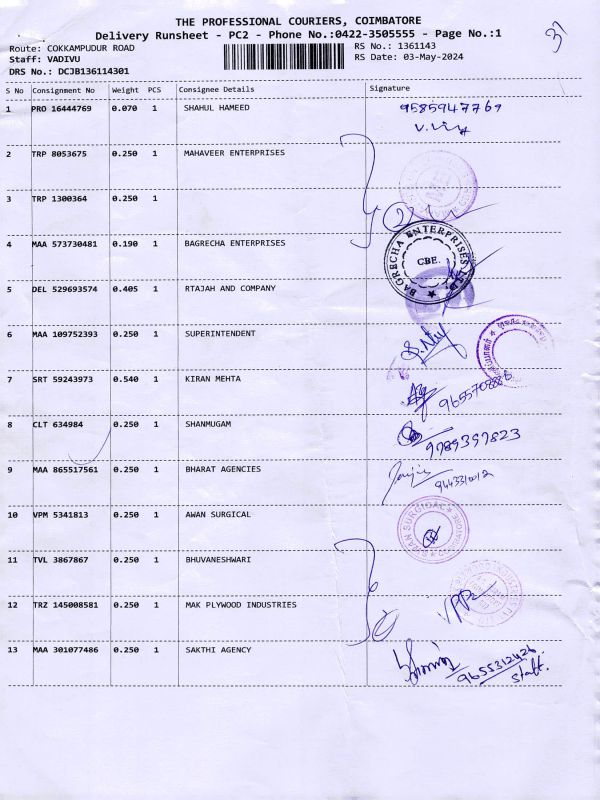 THE PROFESSIONAL COURIERS, COIMBATORE
Delivery Runsheet - PC2 - Phone No.:0422-3505555 - Page No.:1
Route: COKKAMPUDUR ROAD
RS No.: 1361143
Staff: VADIVU
RS Date: 03-May-2024
DRS No.: DCJB136114301
S No Consignment No Weight PCS Consignee Details Signature
1 PRO 16444769 0.070 1 SHAHUL HAMEED 9585947769
2 TRP 8053675 0.250 1 MAHAVEER ENTERPRISES
3 TRP 1300364 0.250 1
2
4 MAA 573730481 0.190 1 BAGRECHA ENTERPRISES
BAGRECHA ENTERPRISES LTD
CBE.
5 DEL 529693574 0.405 1 RTAJAH AND COMPANY
6 MAA 109752393 0.250 1 SUPERINTENDENT
7 SRT 59243973 0.540 1 KIRAN MEHTA
8 CLT 634984 0.250 1 SHANMUGAM 9789397823
9 MAA 865517561 0.250 1 BHARAT AGENCIES
10 VPM 5341813 0.250 1 AWAN SURGICAL
11 TVL 3867867 0.250 1 BHUVANESHWARI
12 TRZ 145008581 0.250 1 MAK PLYWOOD INDUSTRIES
13 MAA 301077486 0.250 1 SAKTHI AGENCY 9655312426
staff.